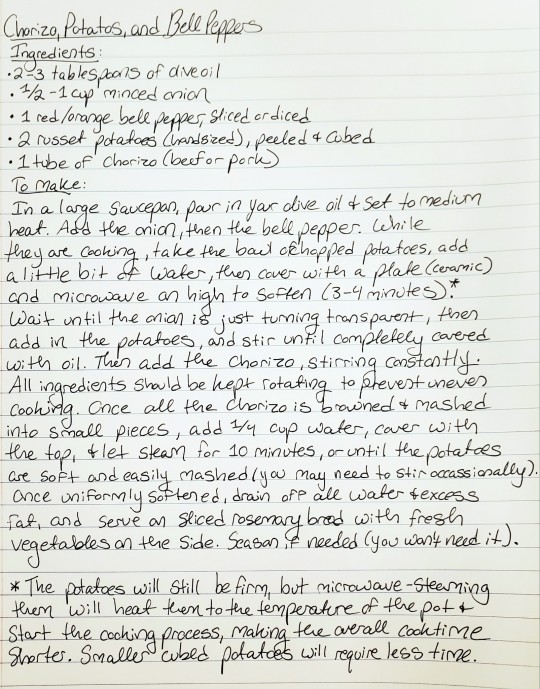 Chorizo, Potatos, and Bell Peppers
Ingredients:
• 2-3 tablespoons of olive oil
• 1/2 - 1 cup minced onion
• 1 red/orange bell pepper, sliced or diced
• 2 russet potatoes (handsized), peeled & cubed
• 1 tube of chorizo (beef or pork)
To make:
In a large saucepan, pour in your olive oil & set to medium
heat. Add the onion, then the bell pepper. While
they are cooking, take the bowl of chopped potatoes, add
a little bit of water, then cover with a plate (ceramic)
and microwave on high to soften (3-4 minutes).*
Wait until the onion is just turning transparent, then
add in the potatoes, and stir until completely covered
with oil. Then add the chorizo, stirring constantly.
All ingredients should be kept rotating to prevent uneven
cooking. Once all the chorizo is browned & mashed
into small pieces, add 1/4 cup water, cover with
the top, & let steam for 10 minutes, or until the potatoes
are soft and easily mashed (you may need to stir occassionally).
Once uniformly softened, drain off all water & excess
fat, and serve on sliced rosemary bread with fresh
vegetables on the side. Season if needed (you won't need it).
* The potatoes will still be firm, but microwave-steaming
them will heat them to the temperature of the pot &
start the cooking process, making the overall cooktime
shorter. Smaller cubed potatoes will require less time.